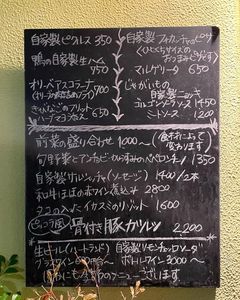 自家製ピクルス 350
鴨の自家製生ハム
750
オリーベアスコラーナ
700
きびなごのフリット
ハーブマヨネーズ 650
自家製フォカッチャのピッツァ
(ひとくちサイズの
おつまみピザです)
マルゲリータ 650
じゃがいもの
自家製ニョッキ
ゴルゴンゾーラソース 1450
ミートソース 1200
前菜の盛り合わせ 1,000〜 (食材によって
変わります)
旬野菜とアンチョビ・からすみのペペロンチーノ 1350
自家製サルシッチャ(ソーセージ) 1400/2本
和牛ほほの赤ワイン煮込み 2800
タコ入り イカスミのリゾット 1600
骨付き豚カツレツ 2,200
生ビール(ハートランド) 自家製リモンチェッロソーダ
グラスワイン ボトルワイン 3000〜
ほかにも メニューございます